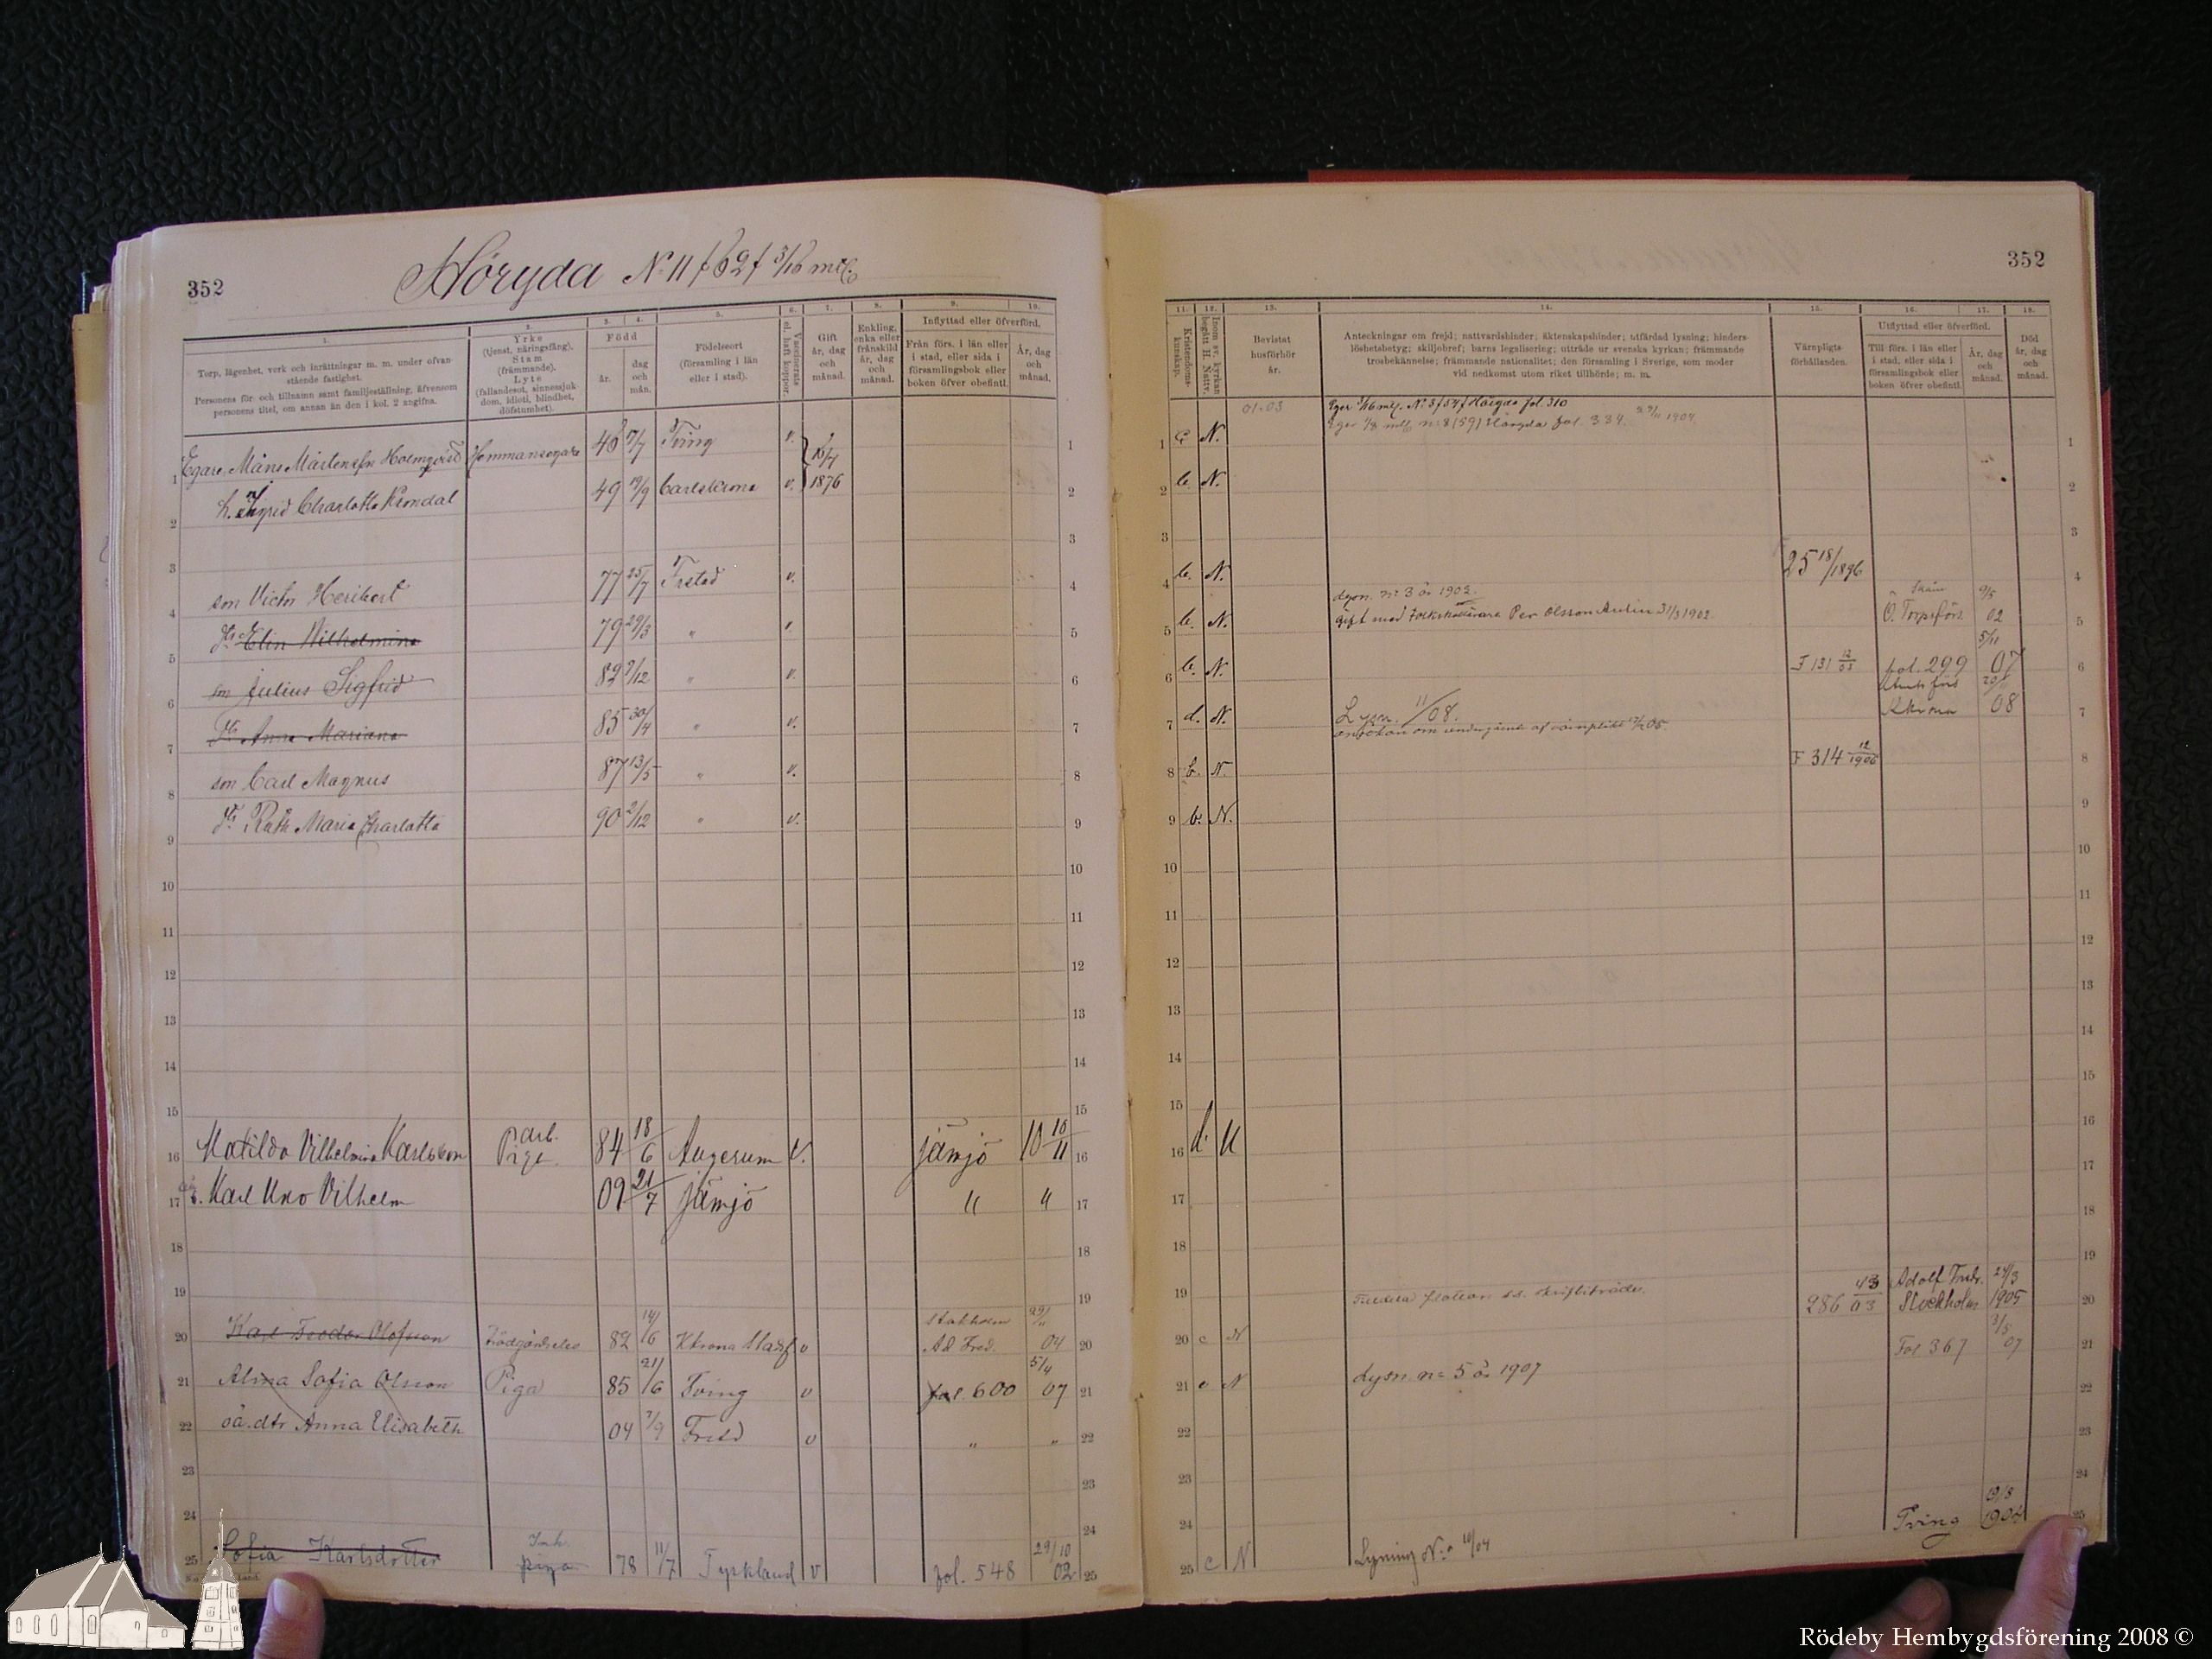 352
Höryda N:o 11 f62f 3/16 mtl.
1.
2.
3.
4.
5.
6.
7.
8.
9.
10.
Torp, lägenhet, verk och inrättningar m. m. under ofvan
stående fastighet.
Personens för- och tillnamn samt familjeställning, äfvensom
personens titel, om annan än den i kol. 2 angifna.
Yrke
(tjenst, näringsfång).
Stam
(främmande).
Lyte
(fallandesot, sinnessjuk-
dom, idioti, blindhet,
döfstumhet).
Född
år.
dag
och
mån.
Födelseort
(församling i län
eller i stad).
Vaccinerats
el. haft koppor.
Gift
år, dag
och
månad.
Enkling,
enka eller
frånskild
år, dag
och
månad.
Inflyttad eller öfverförd.
Från förs. i län eller
i stad, eller sida i
församlingsbok eller
boken öfver obefintl.
År, dag
och
månad.
1 Egare Måns Mårtensson Holmqvist Hemmansegare 46 17/7 Tving v. 15/7 1
2 h. Ingrid Charlotta Krondal 49 19/9 Carlskrona v. 1876 2
3 3
4 son Victor Heribert 77 25/7 Frstad v. 4
5 dtr Elin Wilhelmina 79 29/3 " 5
6 son Julius Sigfrid 82 9/12 " v. 6
7 dtr Anna Mariana 85 30/4 " v. 7
8 son Carl Magnus 87 13/5 " v. 8
9 dtr Ruth Maria Charlotta 90 2/12 " v. 9
10 10
11 11
12 12
13 13
14 14
15 15
16 Matilda Vilhelmina Karlsson arb. Piga 84 18/6 Augerum v. Jämjö 10 10/11 16
17 Karl Uno Vilhelm 09 21/7 Jämjö " " 17
18 18
19 19
20 Karl Teodor Olofsson Trädgårdselev 82 14/6 Kkrona Stadsf v Stokholm Ad Fred. 04 20
21 Alma Sofia Olsson Piga 85 21/6 Tving v fol. 600 5/4 07 21
22 oä. dtr Anna Elisabeth 04 7/9 Frstd v " " 22
23 23
24 24
25 Sofia Karlsdotter Inh. piga 78 11/7 Fyrkland v fol. 548 29/10 02 25
352
11.
12.
13.
14.
15.
16.
17.
18.
Kristendoms-
kunskap.
Inom sv. kyrkan
begått H. Nattv.
Bevistat
husförhör
år.
Anteckningar om frejd; nattvardshinder; äktenskapshinder; utfärdad lysning; hinders-
löshetsbetyg; skiljobref; barns legalisering; utträde ur svenska kyrkan; främmande
trosbekännelse; främmande nationalitet; den församling i Sverige, som moder
vid nedkomst utom riket tillhörde; m. m.
Värnpligts-
förhållanden.
Utflyttad eller öfverförd.
Till förs. i län eller
i stad, eller sida i
församlingsbok eller
boken öfver obefintl.
År, dag
och
månad.
Död
år, dag
och
månad.
01-03 Eger 3/16 mtl. N:o 8f54f Höryda fol. 310
1 c N. Eger 1/8 mtl. n:o 8(59) Höryda fol. 334. 1904. 1
2 b. N. 2
3 3
4 b. N. 25 18/1896 4
Lysn. n:o 3 år 1902. Skåne 9/5
5 b. N. gift med Folkskollärare Per Olsson 31/5 1902. Ö. Torps förs. 02 5
5/11
6 b. N. F 131 12/03 fol. 299 07 6
7 d. N. Lysn. 11/08. Kkrona 08 7
8 b. N. F 314 12/1906 8
9 b. N. 9
10 10
11 11
12 12
13 13
14 14
15 15
16 d. N 16
17 17
18 18
19 19
43 Adolf Fredr. 24/3
20 c N 286 03 Stockholm 1905 20
3/8
21 c N Lysn. n:o 5 år 1907 Fol 367 07 21
22 22
23 23
24 24
19/8
25 c N Lysning N:o 10/04 Tving 1904 25
Rödeby Hembygdsförening 2008 ©